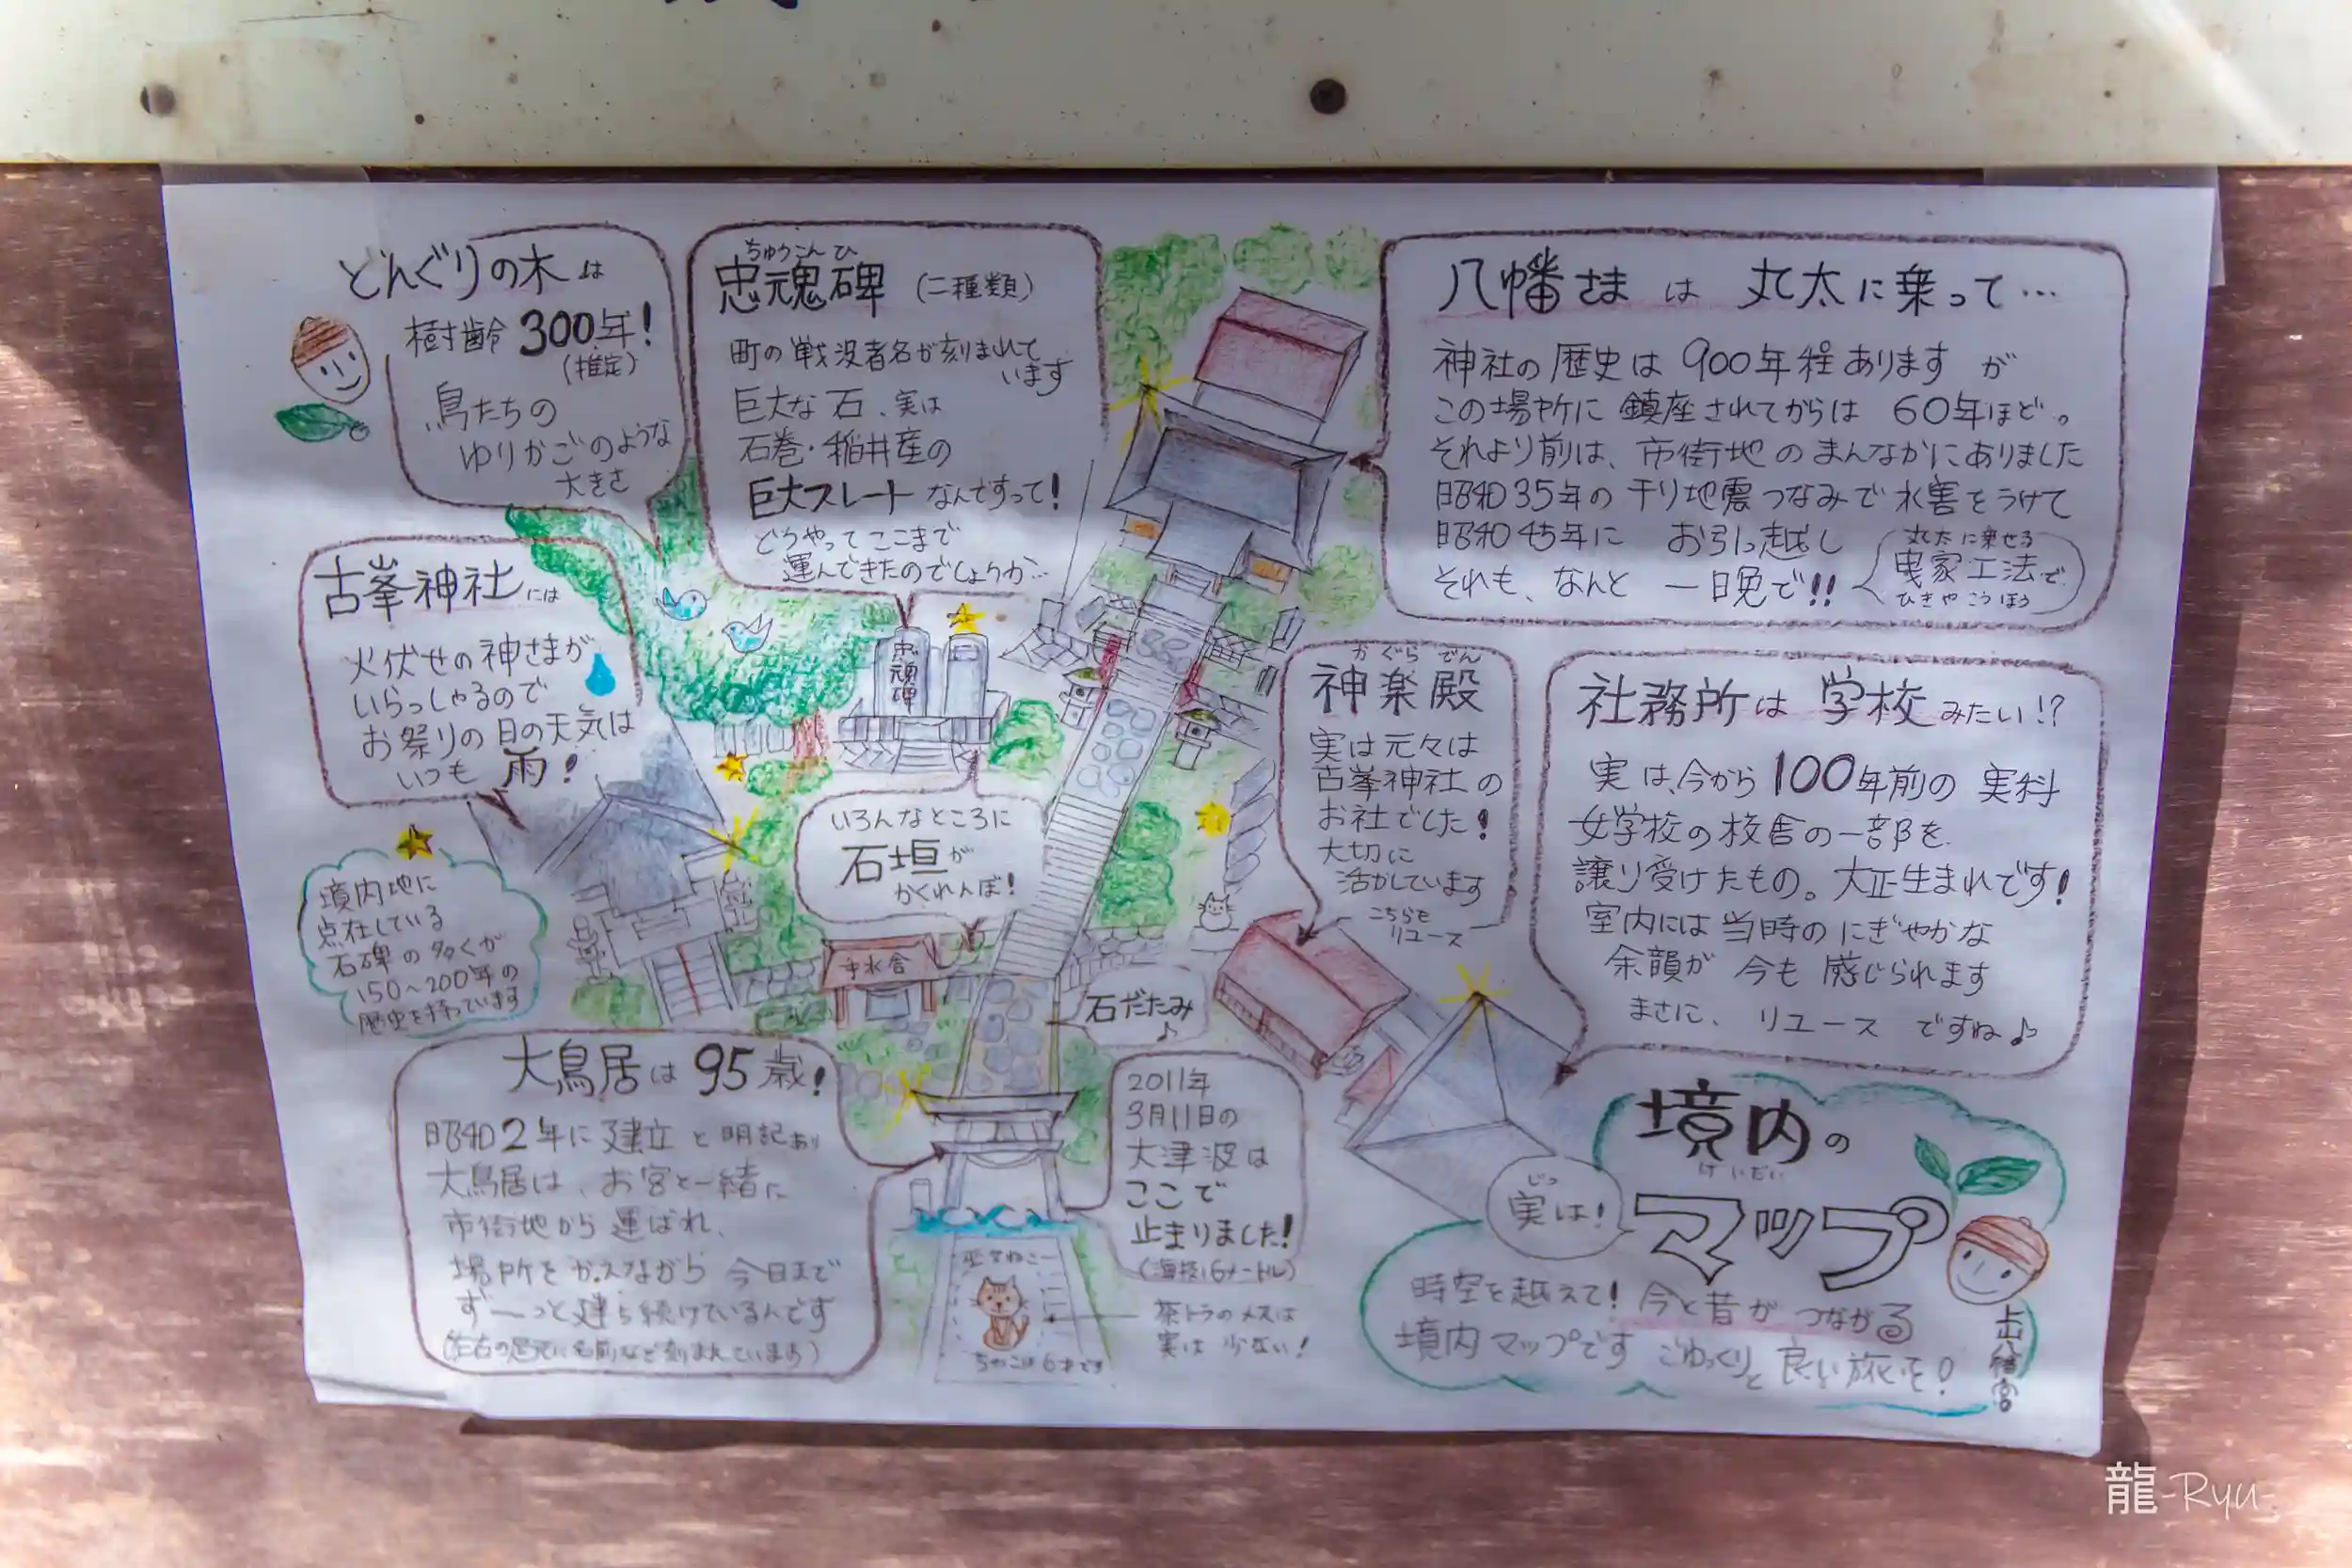 どんぐりの木は
樹齢300年!
(推定)
鳥たちの
ゆりかごのような
大きさ
ちゅうこんひ
忠魂碑 (二種類)
町の戦没者名が刻まれて
います
巨大な石、実は
石巻・稲井産の
巨大スレートなんですって!
どうやってここまで
運んできたのでしょうか…
八幡さまは丸太に乗って…
神社の歴史は900年程ありますが
この場所に鎮座されてからは60年ほど。
それより前は、市街地のまんなかにありました
昭和35年のチリ地震つなみで水害をうけて
昭和45年に お引っ越し
それも、なんと 一日晩で!!
丸太に乗せる
曳家工法で
ひきやこうほう
古峯神社には
火伏せの神さまが
いらっしゃるので
お祭りの日の天気は
いつも雨!
忠魂碑
いろんなところに
石垣が
かくれんぼ!
かぐらでん
神楽殿
実は元々は
古峯神社の
お社でした!
大切に
活かしています
こちらも
リユース
社務所は学校みたい!?
実は、今から100年前の実科
女学校の校舎の一部を
譲り受けたもの。大正生まれです!
室内には当時のにぎやかな
余韻が 今も感じられます
まさに、リユース ですね♪
境内地に
点在している
石碑の多くが
150~200年の
歴史を持っています
手水舎
石だたみ
♪
大鳥居は95歳!
昭和2年に建立と明記あり
大鳥居は、お宮と一緒に
市街地から運ばれ、
場所をかえながら 今日まで
ず〜っと建ち続けているんです
(左右の足元に名前など刻まれています)
2011年
3月11日の
大津波は
ここで
止まりました!
(海抜16メートル)
茶トラのメスは
実は少ない!
ちゃこは6才です
境内の
けいだい
マップ
じつ
実は!
時空を越えて!今と昔がつながる
境内マップです ごゆっくりと良い旅を!
上山八幡宮
龍-Ryu-